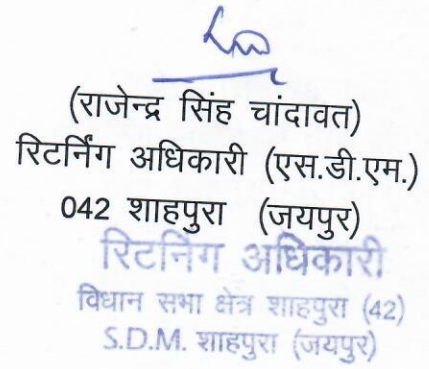 (राजेन्द्र सिंह चांदावत)
रिटर्निंग अधिकारी (एस.डी.एम.)
042 शाहपुरा (जयपुर)
रिटर्निंग अधिकारी
विधान सभा क्षेत्र शाहपुरा (42)
S.D.M. शाहपुरा (जयपुर)